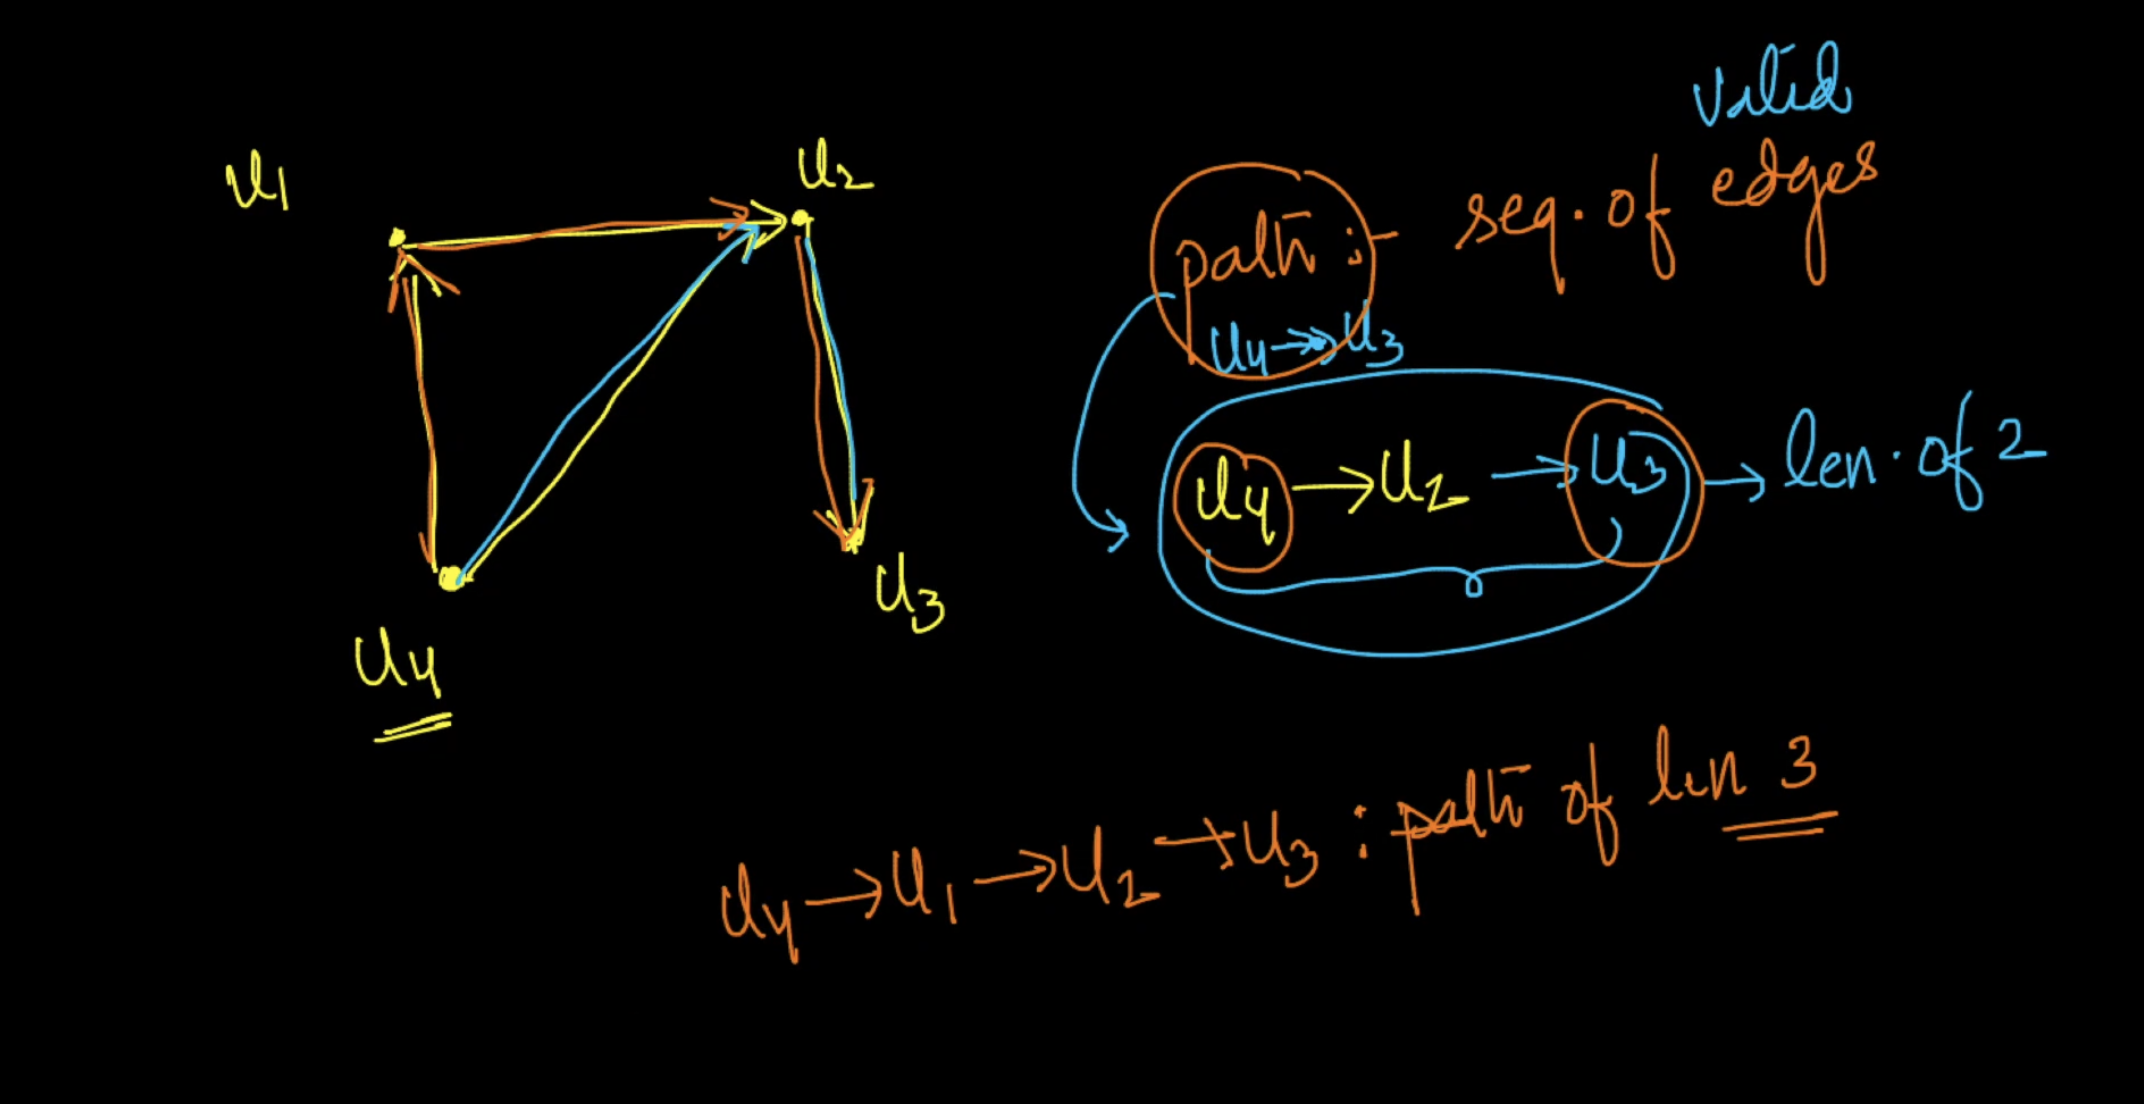 u1
u2
u3
u4
valid
path :- seq. of edges
u4 →→ u3
u4 → u2 → u3 → len. of 2
u4 → u1 → u2 → u3 : path of len 3